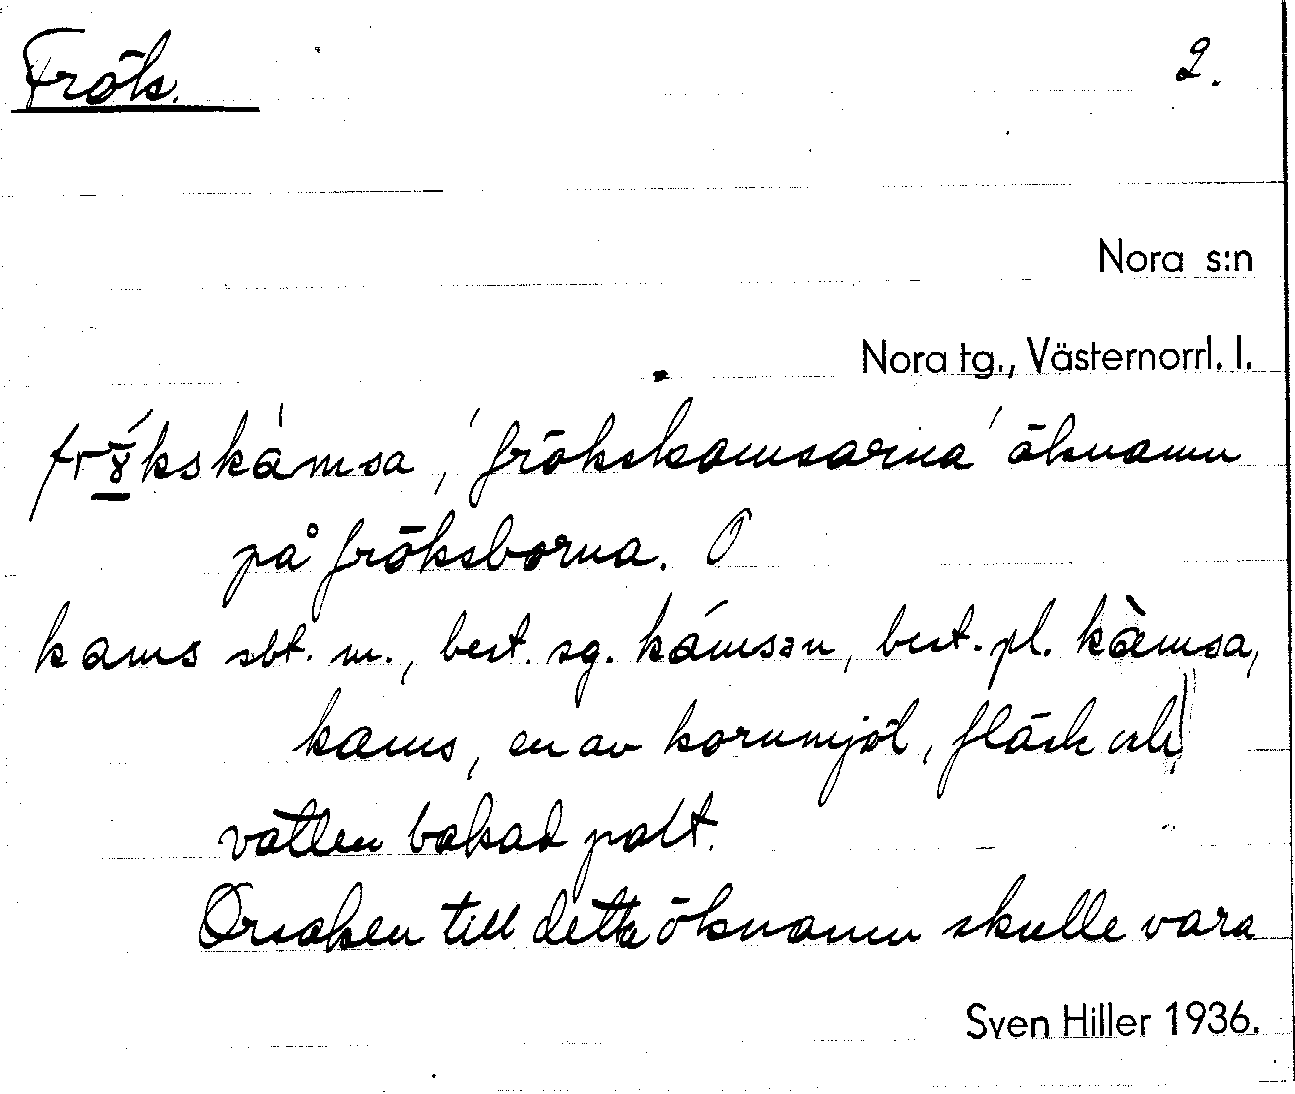 Frök.
2.
Nora s:n
Nora tg., Västernorrl. l.
frɣ́kskámsa, 'frökskamsarna' öknamn
på fröksborna.
kams sbt. m., best. sg. kámsən, best. pl. kàmsa,
kams, en av kornmjöl, fläsk och
vatten bakad palt.
Orsaken till detta öknamn skulle vara
Sven Hiller 1936.